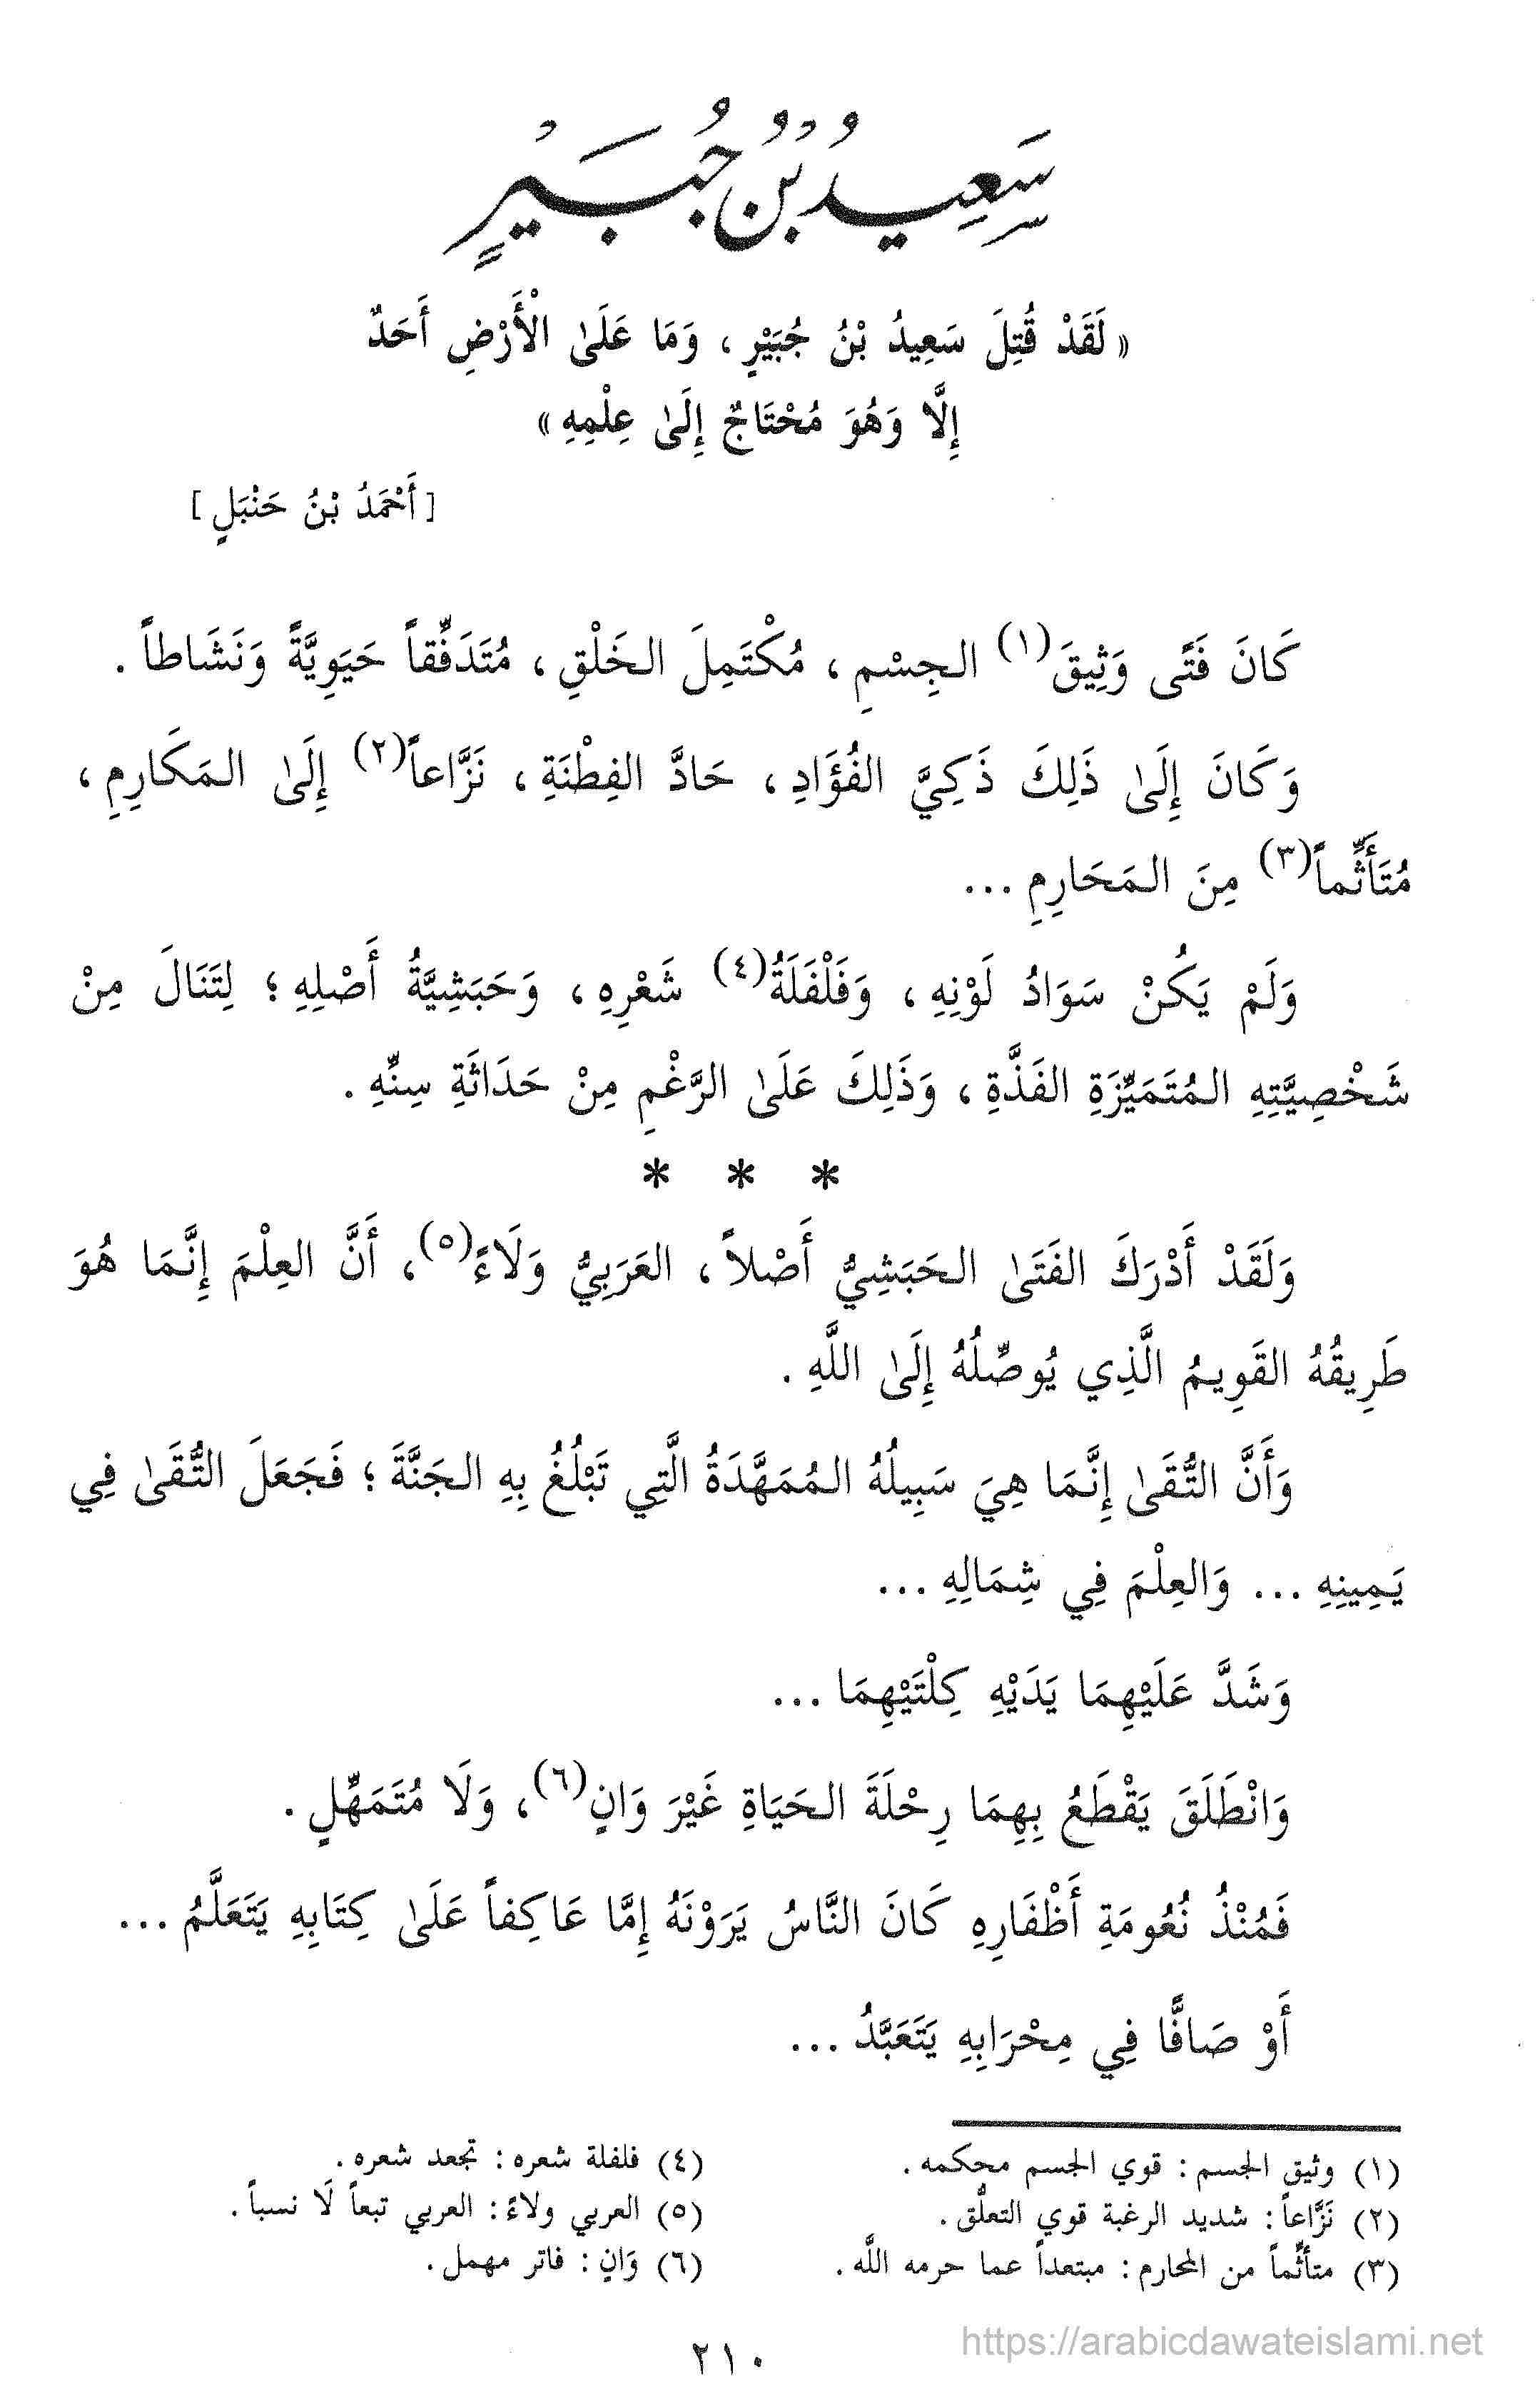 سَعِيدُ بْنُ جُبَيْرٍ
« لَقَدْ قُتِلَ سَعِيدُ بْنُ جُبَيْرٍ ، وَمَا عَلَىٰ الْأَرْضِ أَحَدٌ
إِلَّا وَهُوَ مُحْتَاجٌ إِلَىٰ عِلْمِهِ »
[ أَحْمَدُ بْنُ حَنْبَلٍ ]
كَانَ فَتًى وَثِيقَ(١) الجِسْمِ ، مُكْتَمِلَ الخَلْقِ ، مُتَدَفِّقاً حَيَوِيَّةً وَنَشَاطاً .
وَكَانَ إِلَىٰ ذَلِكَ ذَكِيَّ الفُؤَادِ ، حَادَّ الفِطْنَةِ ، نَزَّاعاً(٢) إِلَىٰ المَكَارِمِ ،
مُتَأَثِّماً(٣) مِنَ المَحَارِمِ ...
وَلَمْ يَكُنْ سَوَادُ لَوْنِهِ ، وَفَلْفَلَةُ(٤) شَعْرِهِ ، وَحَبَشِيَّةُ أَصْلِهِ ؛ لِتَنَالَ مِنْ
شَخْصِيَّتِهِ المُتَمَيِّزَةِ الفَذَّةِ ، وَذَلِكَ عَلَىٰ الرَّغْمِ مِنْ حَدَاثَةِ سِنِّهِ .
* * *
وَلَقَدْ أَدْرَكَ الفَتَىٰ الحَبَشِيُّ أَصْلاً ، العَرَبِيُّ وَلَاءً(٥)، أَنَّ العِلْمَ إِنَّمَا هُوَ
طَرِيقُهُ القَوِيمُ الَّذِي يُوصِّلُهُ إِلَىٰ اللَّهِ .
وَأَنَّ التُّقَىٰ إِنَّمَا هِيَ سَبِيلُهُ المُمَهَّدَةُ الَّتِي تَبْلُغُ بِهِ الجَنَّةَ ؛ فَجَعَلَ التُّقَىٰ فِي
يَمِينِهِ ... وَالعِلْمَ فِي شِمَالِهِ ...
وَشَدَّ عَلَيْهِمَا يَدَيْهِ كِلْتَيْهِمَا ...
وَانْطَلَقَ يَقْطَعُ بِهِمَا رِحْلَةَ الحَيَاةِ غَيْرَ وَانٍ(٦)، وَلَا مُتَمَهِّلٍ .
فَمُنْذُ نُعُومَةِ أَظْفَارِهِ كَانَ النَّاسُ يَرَوْنَهُ إِمَّا عَاكِفاً عَلَىٰ كِتَابِهِ يَتَعَلَّمُ ...
أَوْ صَافًّا فِي مِحْرَابِهِ يَتَعَبَّدُ ...
(١) وثيق الجسم : قوي الجسم محكمه .
(٢) نَزَّاعاً : شديد الرغبة قوي التعلُّق .
(٣) متأثِّماً من المحارم : مبتعداً عما حرمه اللَّه .
(٤) فلفلة شعره : تجعد شعره .
(٥) العربي ولاءً : العربي تبعاً لَا نسباً .
(٦) وَانٍ : فاتر مهمل .
٢١٠
https://arabicdawateislami.net